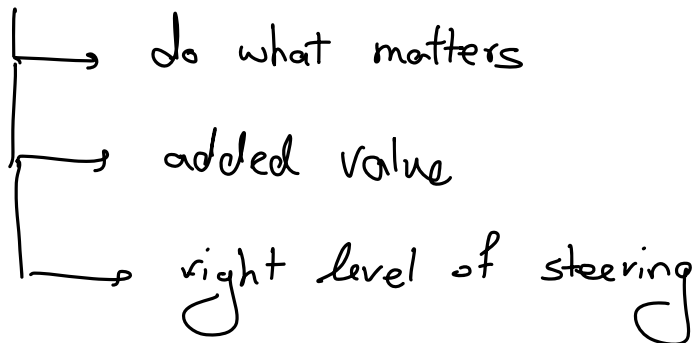 do what matters
added value
right level of steering